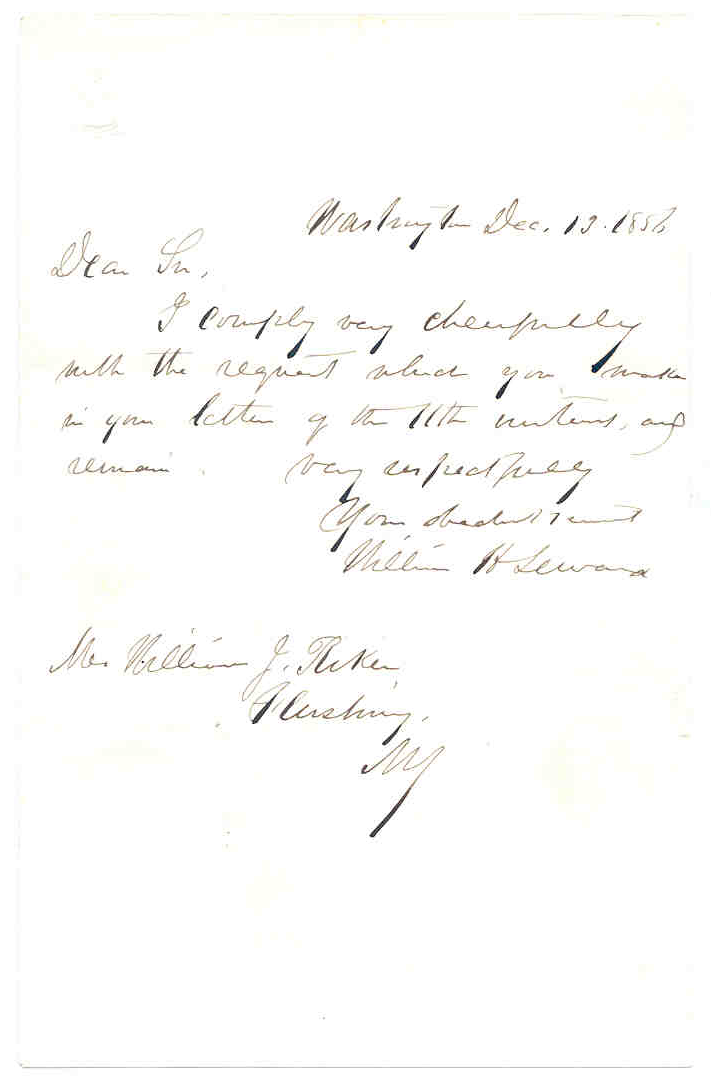 Washington Dec. 13. 1856
Dear Sir,
I comply very cheerfully
with the request which you make
in your letter of the 11th instant, and
remain. very respectfully
Your obedient servant
William H Seward
William J. Riker
Flushing,
NY